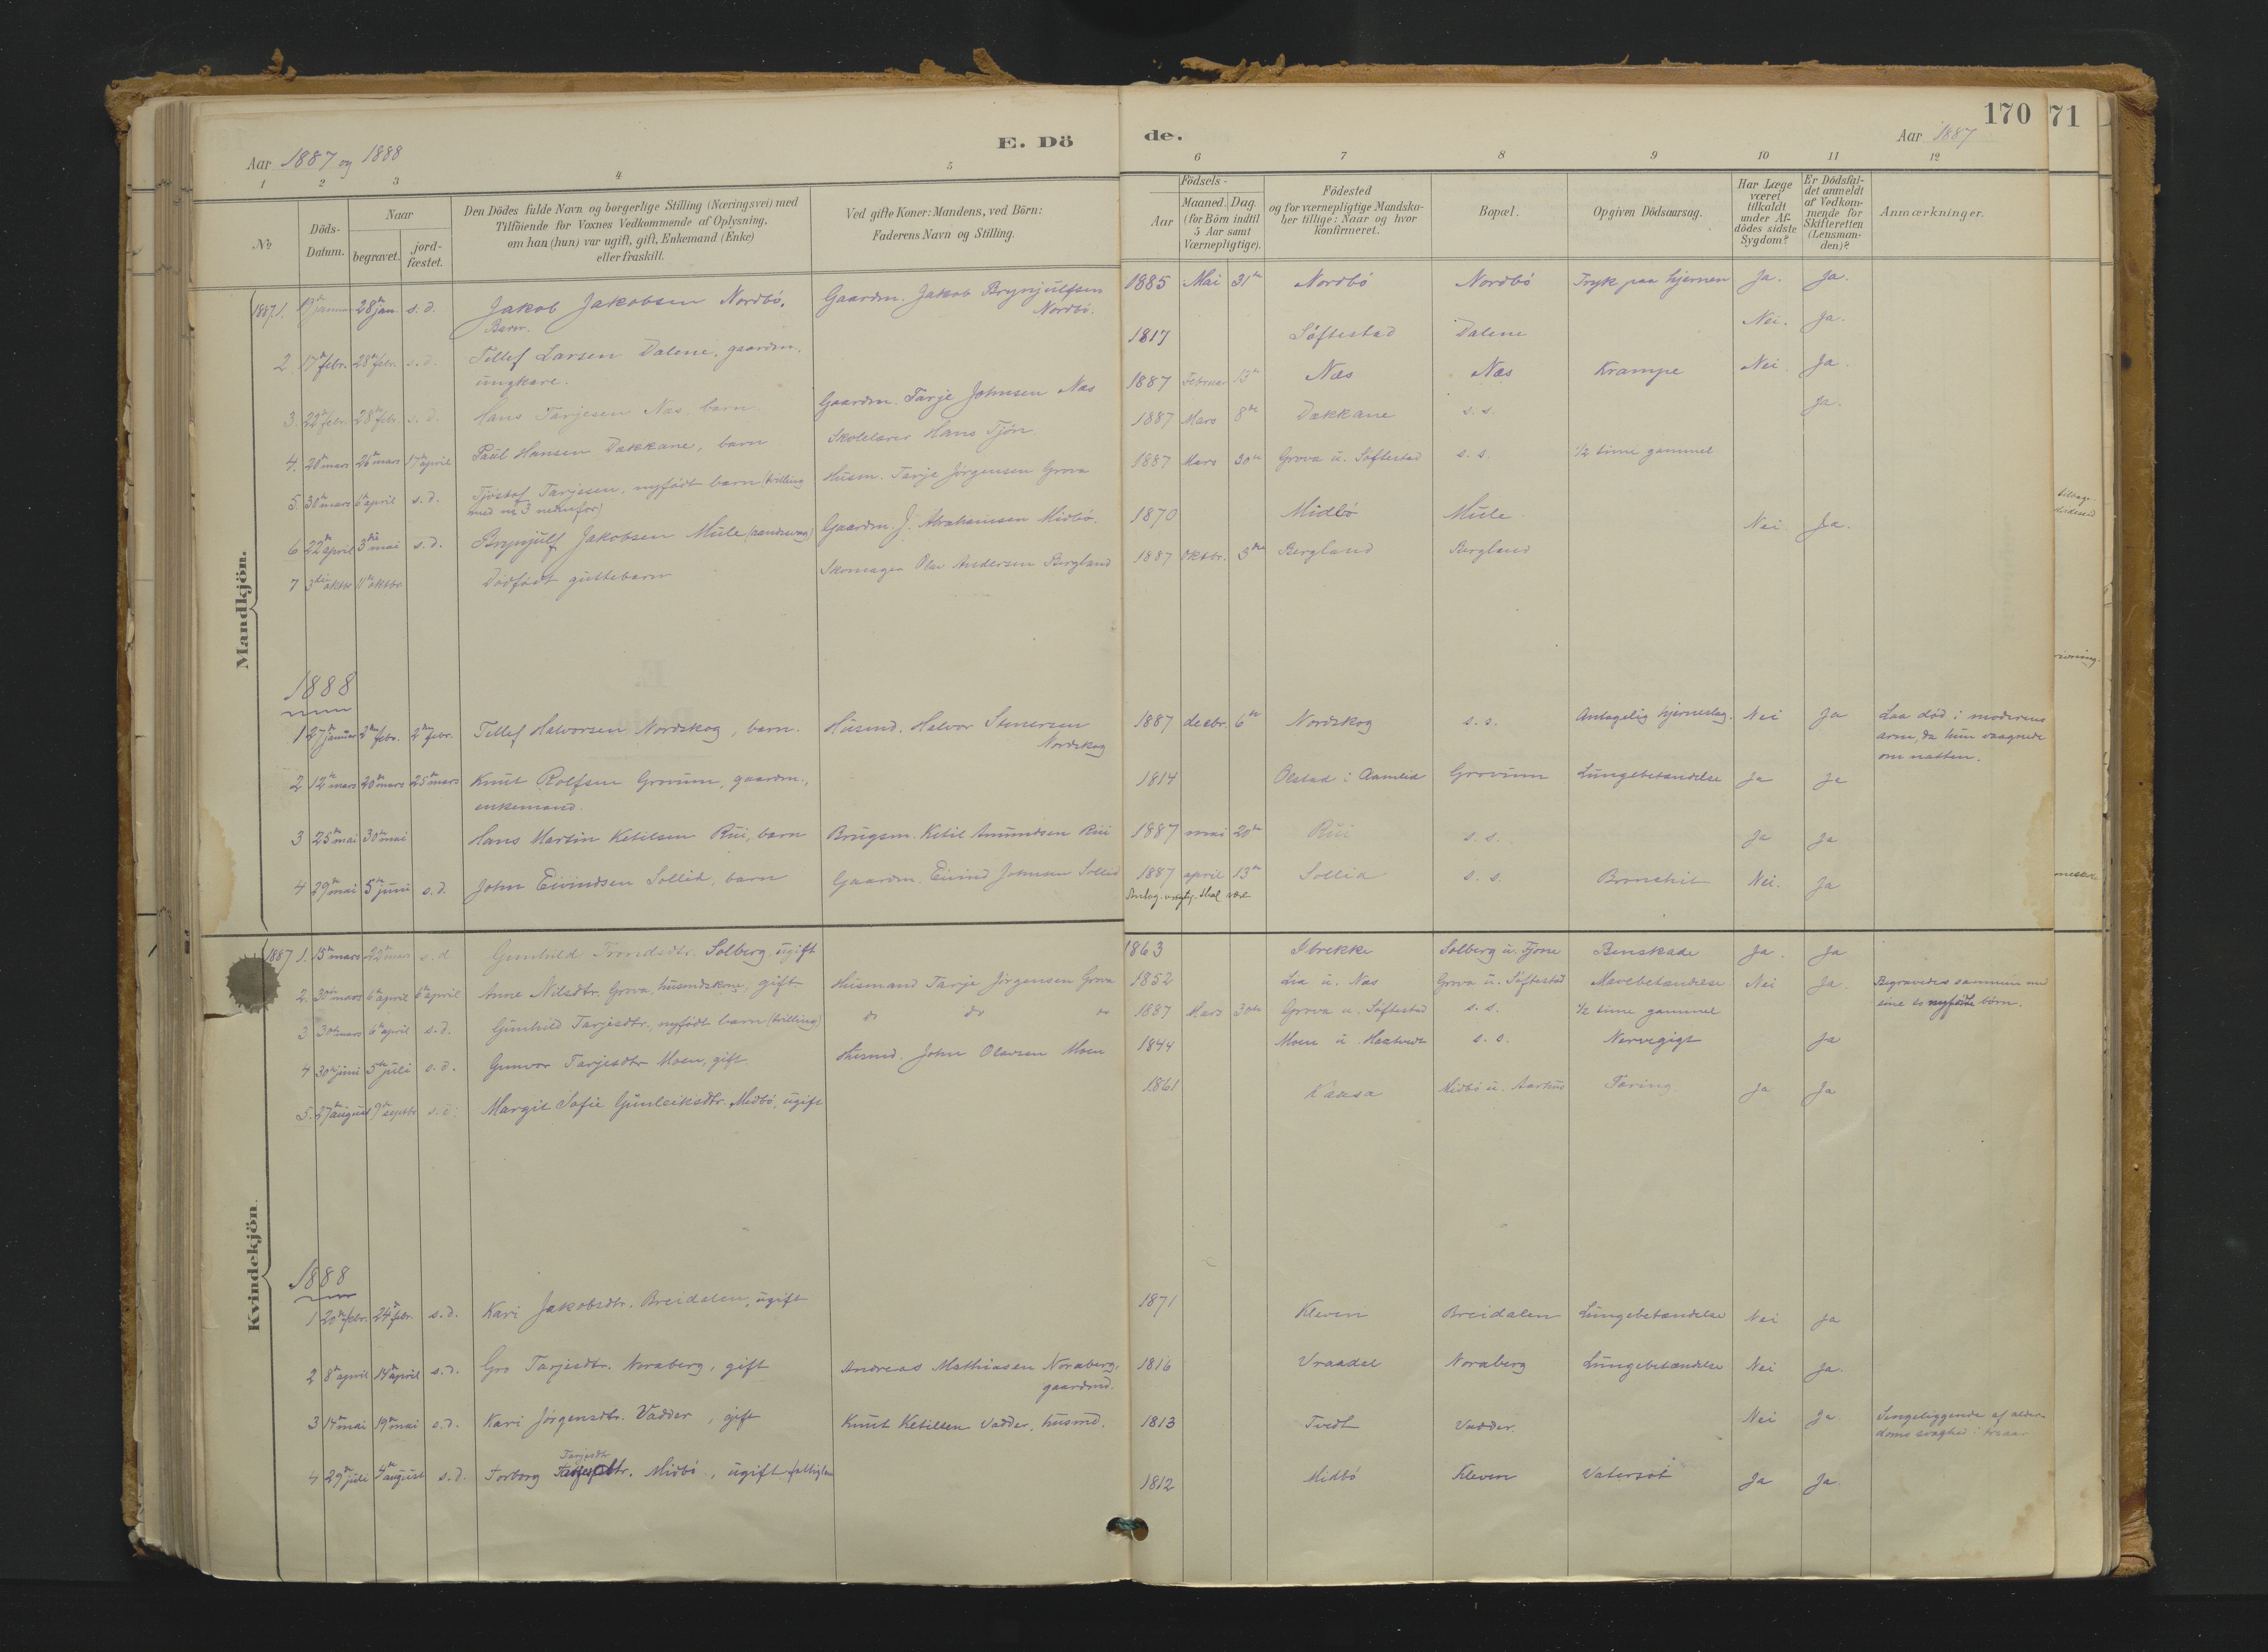 170
71
E. Dö
de.
Aar 1887 og 1888
Aar 1887
1 2 3 4 5 6 7 8 9 10 11 12
No
Döds-
Datum.
Naar
begravet.
jord-
fæstet.
Den Dödes fulde Navn og borgerlige Stilling (Næringsvei) med
Tilföiende for Voxnes Vedkommende af Oplysning,
om han (hun) var ugift, gift, Enkemand (Enke)
eller fraskilt.
Ved gifte Koner: Mandens, ved Börn:
Faderens Navn og Stilling.
Födsels-
Aar
Maaned.
Dag.
(for Börn indtil
5 Aar samt
Værnepligtige).
Födested
og for værnepligtige Mandska-
ber tillige: Naar og hvor
konfirmeret.
Bopæl.
Opgiven Dödsaarsag.
Har Læge
været
tilkaldt
under Af-
dödes sidste
Sygdom?
Er Dödsfal-
det anmeldt
af Vedkom-
mende for
Skifteretten
(Lensman-
den)?
Anmærkninger.
Mandkjön.
1887. 1. 28de jan. s. d. Jakob Jakobsen Nordbö, Gaardm. Jakob Brynjulfsen 1885 Mai 31te Nordbö Nordbö Tryk paa hjernen Ja. Ja.
Barn. Nordbö.
2. 17de febr. 28de febr. s. d. Tellef Larsen Dalene, gaardm. 1817 Söftestad Dalene Nei. Ja.
ungkare.
3. 22de febr. 28de febr. s. d. Hans Tarjesen Næs, barn Gaardm. Tarje Johnsen Næs 1887 Februar 13de Næs Næs Krampe Nei. Ja.
4. 20de mars 26de mars 17de april Paul Hansen Dakkane, barn Skolelærer Hans Tjön 1887 Mars 8de Dakkane s. s. Ja.
5. 30te mars 6te april s. d. Tjöstof Tarjesen, nyfödt barn (tvilling Husm. Tarje Jörgensen Grova 1887 Mars 30te Grova u. Söftestad s. s. 1/2 time gammel
med no 3 nedenfor)
6 22de april 3die mai s. d. Brynjulf Jakobsen Mule (aandssvag) Gaardm. J. Abrahamsen Midbö. 1870 Midbö Mule Nei Ja.
7 3die oktbr 11te oktbr Dödfödt guttebarn Skomager Olav Andersen Bergland 1887 Oktbr. 3die Bergland Bergland
1888
1 27de januar 2den febr. 2den febr. Tellef Halvorsen Nordskog, barn. Husmd. Halvor Stenersen 1887 decbr. 6te Nordskog s. s. Antagelig hjerneslag. Nei Ja Laa död i moderens
Nordskog arm, da hun vaagnede
om natten.
2 12te mars 20de mars 25de mars Knut Rolfsen Grovum, gaardm., 1814 Ölstad i Aamlid Grovum Lungebetændelse Ja Ja
enkemand.
3 25de mai 30te mai Hans Martin Ketilsen Rui, barn Brugsm. Ketil Amundsen Rui 1887 mai 20de Rui s. s. Ja Ja
4 29de mai 5te juni s. d. John Eivindsen Sollid, barn Gaardm. Eivind Johnsen Sollid 1887 april 13de Sollid s. s. Bronchit Nei. Ja
Kvindekjön.
1887 1. 15de mars 22de mars s. d Gunhild Trondsdtr. Solberg, ugift 1863 Strekke Solberg u. Fjone Benskade Ja. Ja
2. 30te mars 6te april 6te april Anne Nilsdtr. Grova, husmdskone, gift Husmand Tarje Jörgensen Grova 1852 Lia u. Næs Grova u. Söftestad Mavebetændelse Nei Ja. Begravedes sammen med
sine to nyfödte börn.
3 30te mars 6te april s. d. Gunhild Tarjesdtr., nyfödt barn (tvilling) do do do 1887 Mars 30te Grova u. Söftestad s. s. 1/2 time gammel
4 30te juni 5te juli s. d. Gunvor Tarjesdtr. Moen, gift Husmd. John Olavsen Moen 1844 Moen u. s. s. Nervegigt Ja
5. 27de august 9de septbr s. d. Margit Sofie Gunleiksdtr. Midbö, ugift 1861 Kaasa Midbö u. Tæring. Ja Ja
1888
1 20de febr. 24de febr. s. d. Kari Jakobsdtr. Breidalen, ugift 1871 Kleven Breidalen Lungebetændelse Nei Ja
2 8de april 14de april s. d. Gro Tarjesdtr. Noraberg, gift Andreas Mathiasen Noraberg, 1816 Vraadal Noraberg Lungebetændelse Nei Ja.
gaardmd.
3 14de mai 19de mai s. d. Kari Jörgensdtr. Vadder, gift Knut Ketilsen Vadder, husmd. 1813 Tvedt Vadder. Nei Ja Sengeliggende af alder-
doms svaghed i
Tarjesdtr
4 29de juli 4de august s. d. Torborg Midbö, ugift fattiglem 1812 Midbö Kleven Vatersot Ja Ja.